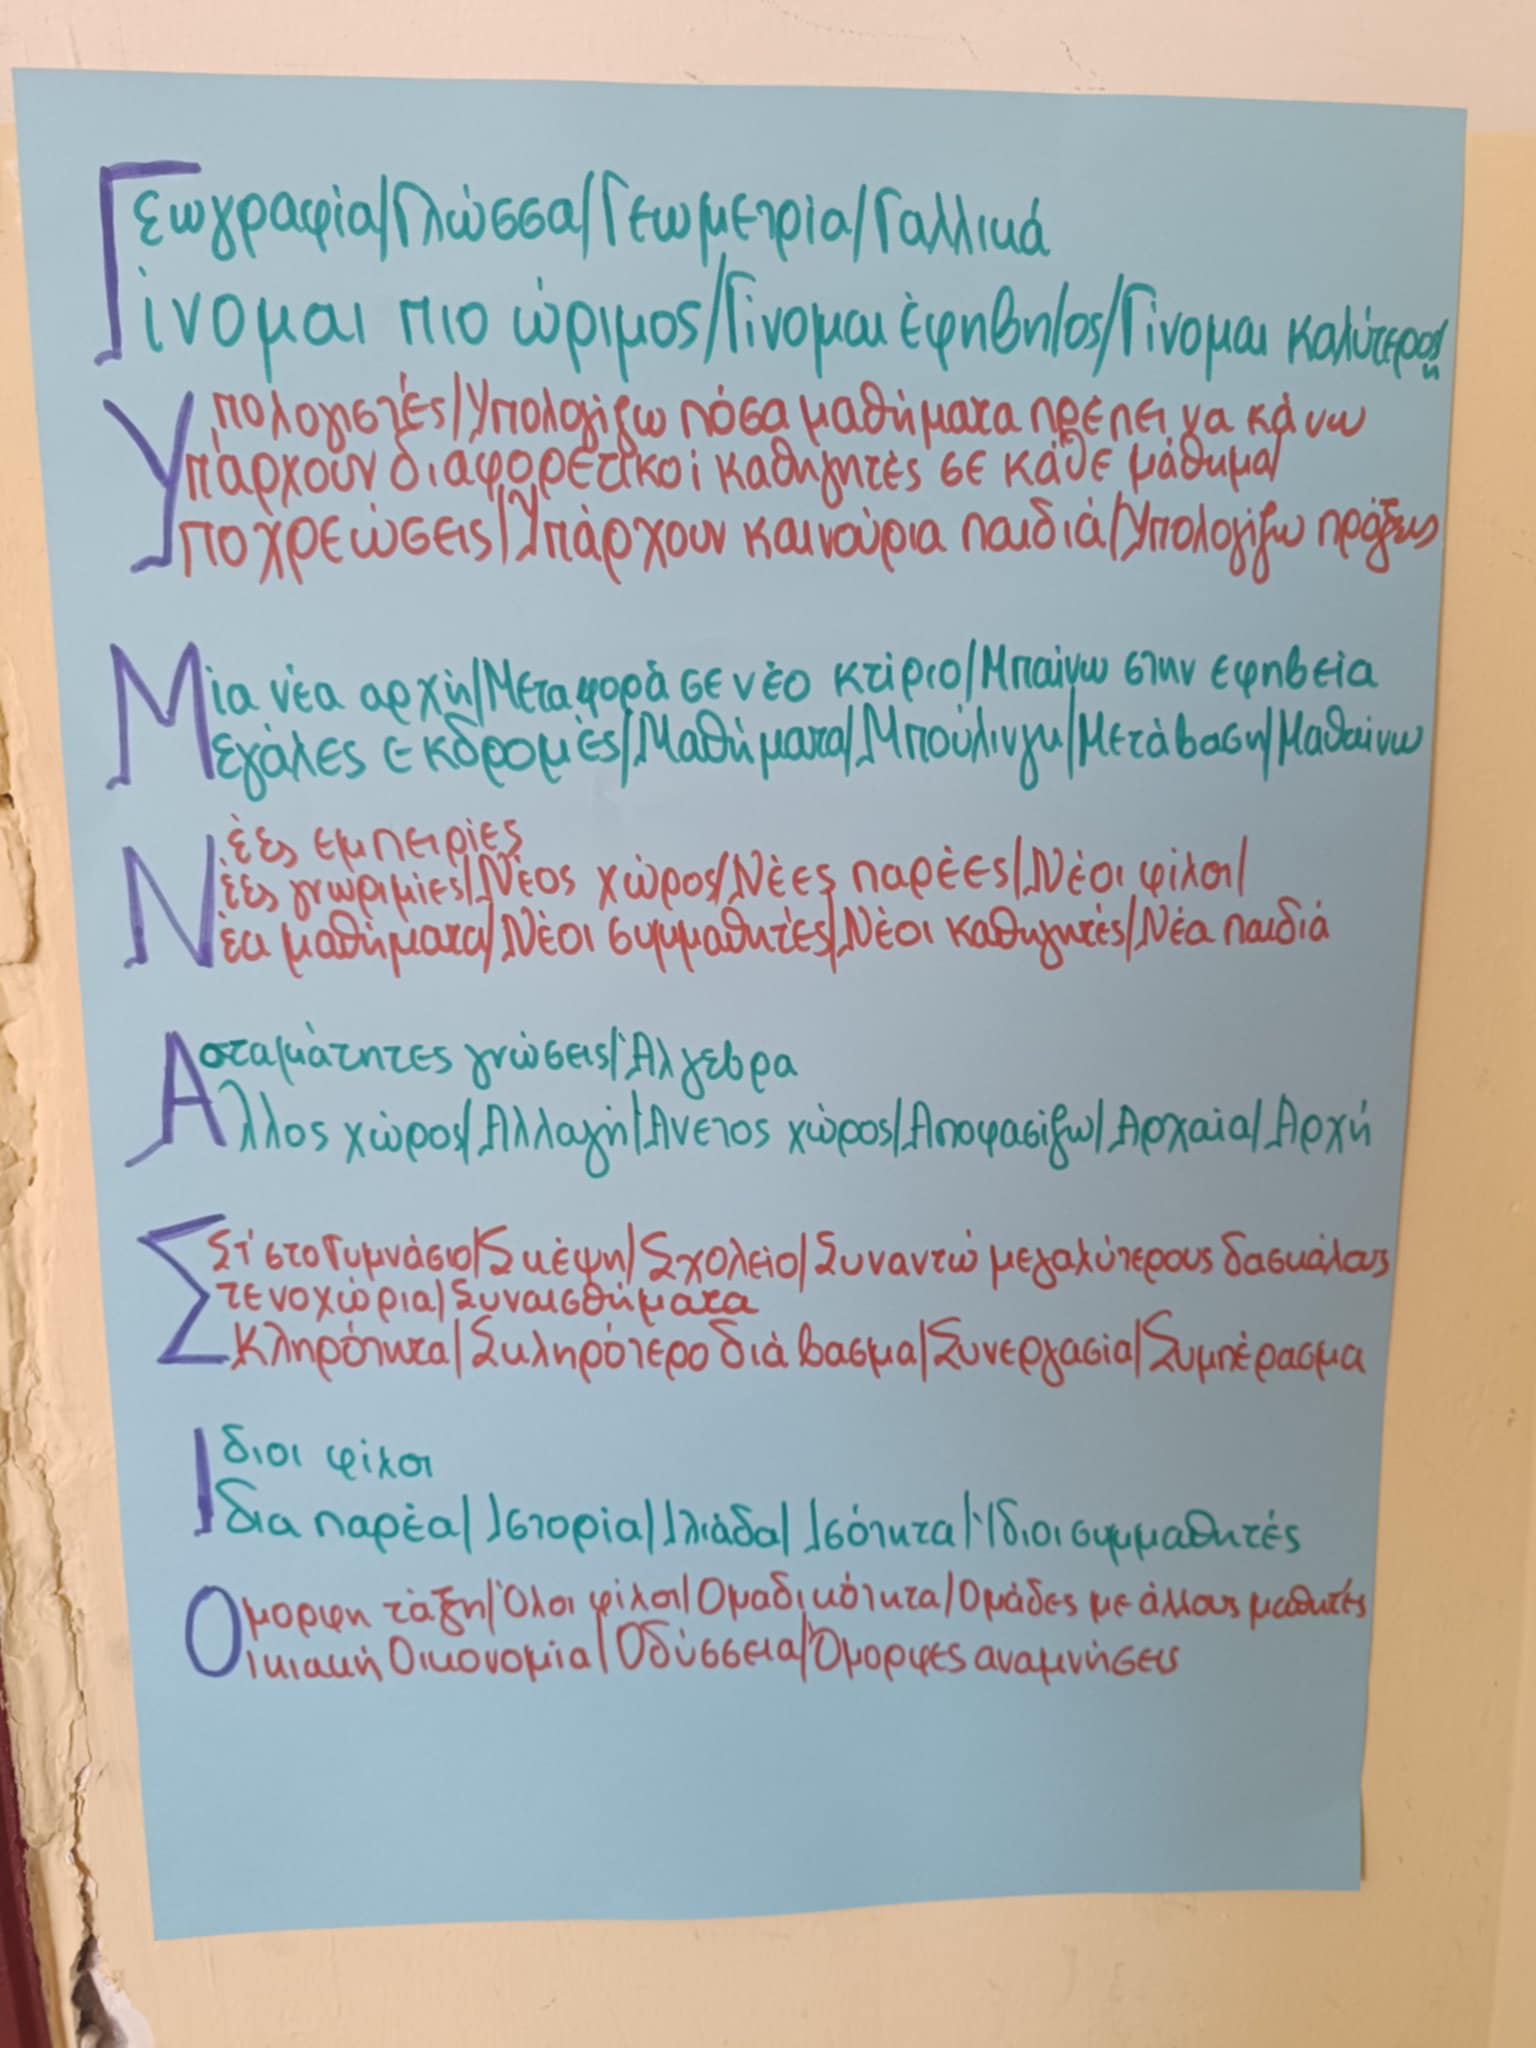 Γεωγραφία/Γλώσσα/Γεωμετρία/Γαλλικά
ίνομαι πιο ώριμος/Γίνομαι έφηβη/ος/Γίνομαι καλύτερος/η
Υπολογιστές/Υπολογίζω πόσα μαθήματα πρέπει να κάνω
πάρχουν διαφορετικοί καθηγητές σε κάθε μάθημα/
ποχρεώσεις/Υπάρχουν καινούρια παιδιά/Υπολογίζω πράξεις
Μία νέα αρχή/Μεταφορά σε νέο κτίριο/Μπαίνω στην εφηβεία
εγάλες εκδρομές/Μαθήματα/Μπούλινγκ/Μετάβαση/Μαθαίνω
Νέες εμπειρίες
έες γνωριμίες/Νέος χώρος/Νέες παρέες/Νέοι φίλοι/
έα μαθήματα/Νέοι συμμαθητές/Νέοι καθηγητές/Νέα παιδιά
Ασταμάτητες γνώσεις/Άλγεβρα
λλος χώρος/Αλλαγή/Άνετος χώρος/Αποφασίζω/Αρχαία/Αρχή
ΣΤ' στο Γυμνάσιο/Σκέψη/Σχολείο/Συναντώ μεγαλύτερους δασκάλους
τενοχώρια/Συναισθήματα
κληρότητα/Σκληρότερο διάβασμα/Συνεργασία/Συμπέρασμα
Ιδιοι φίλοι
δια παρέα/Ιστορία/Ιλιάδα/Ισότητα/Ίδιοι συμμαθητές
Ομορφη τάξη/Όλοι φίλοι/Ομαδικότητα/Ομάδες με άλλους μαθητές
ικιακή Οικονομία/Οδύσσεια/Όμορφες αναμνήσεις